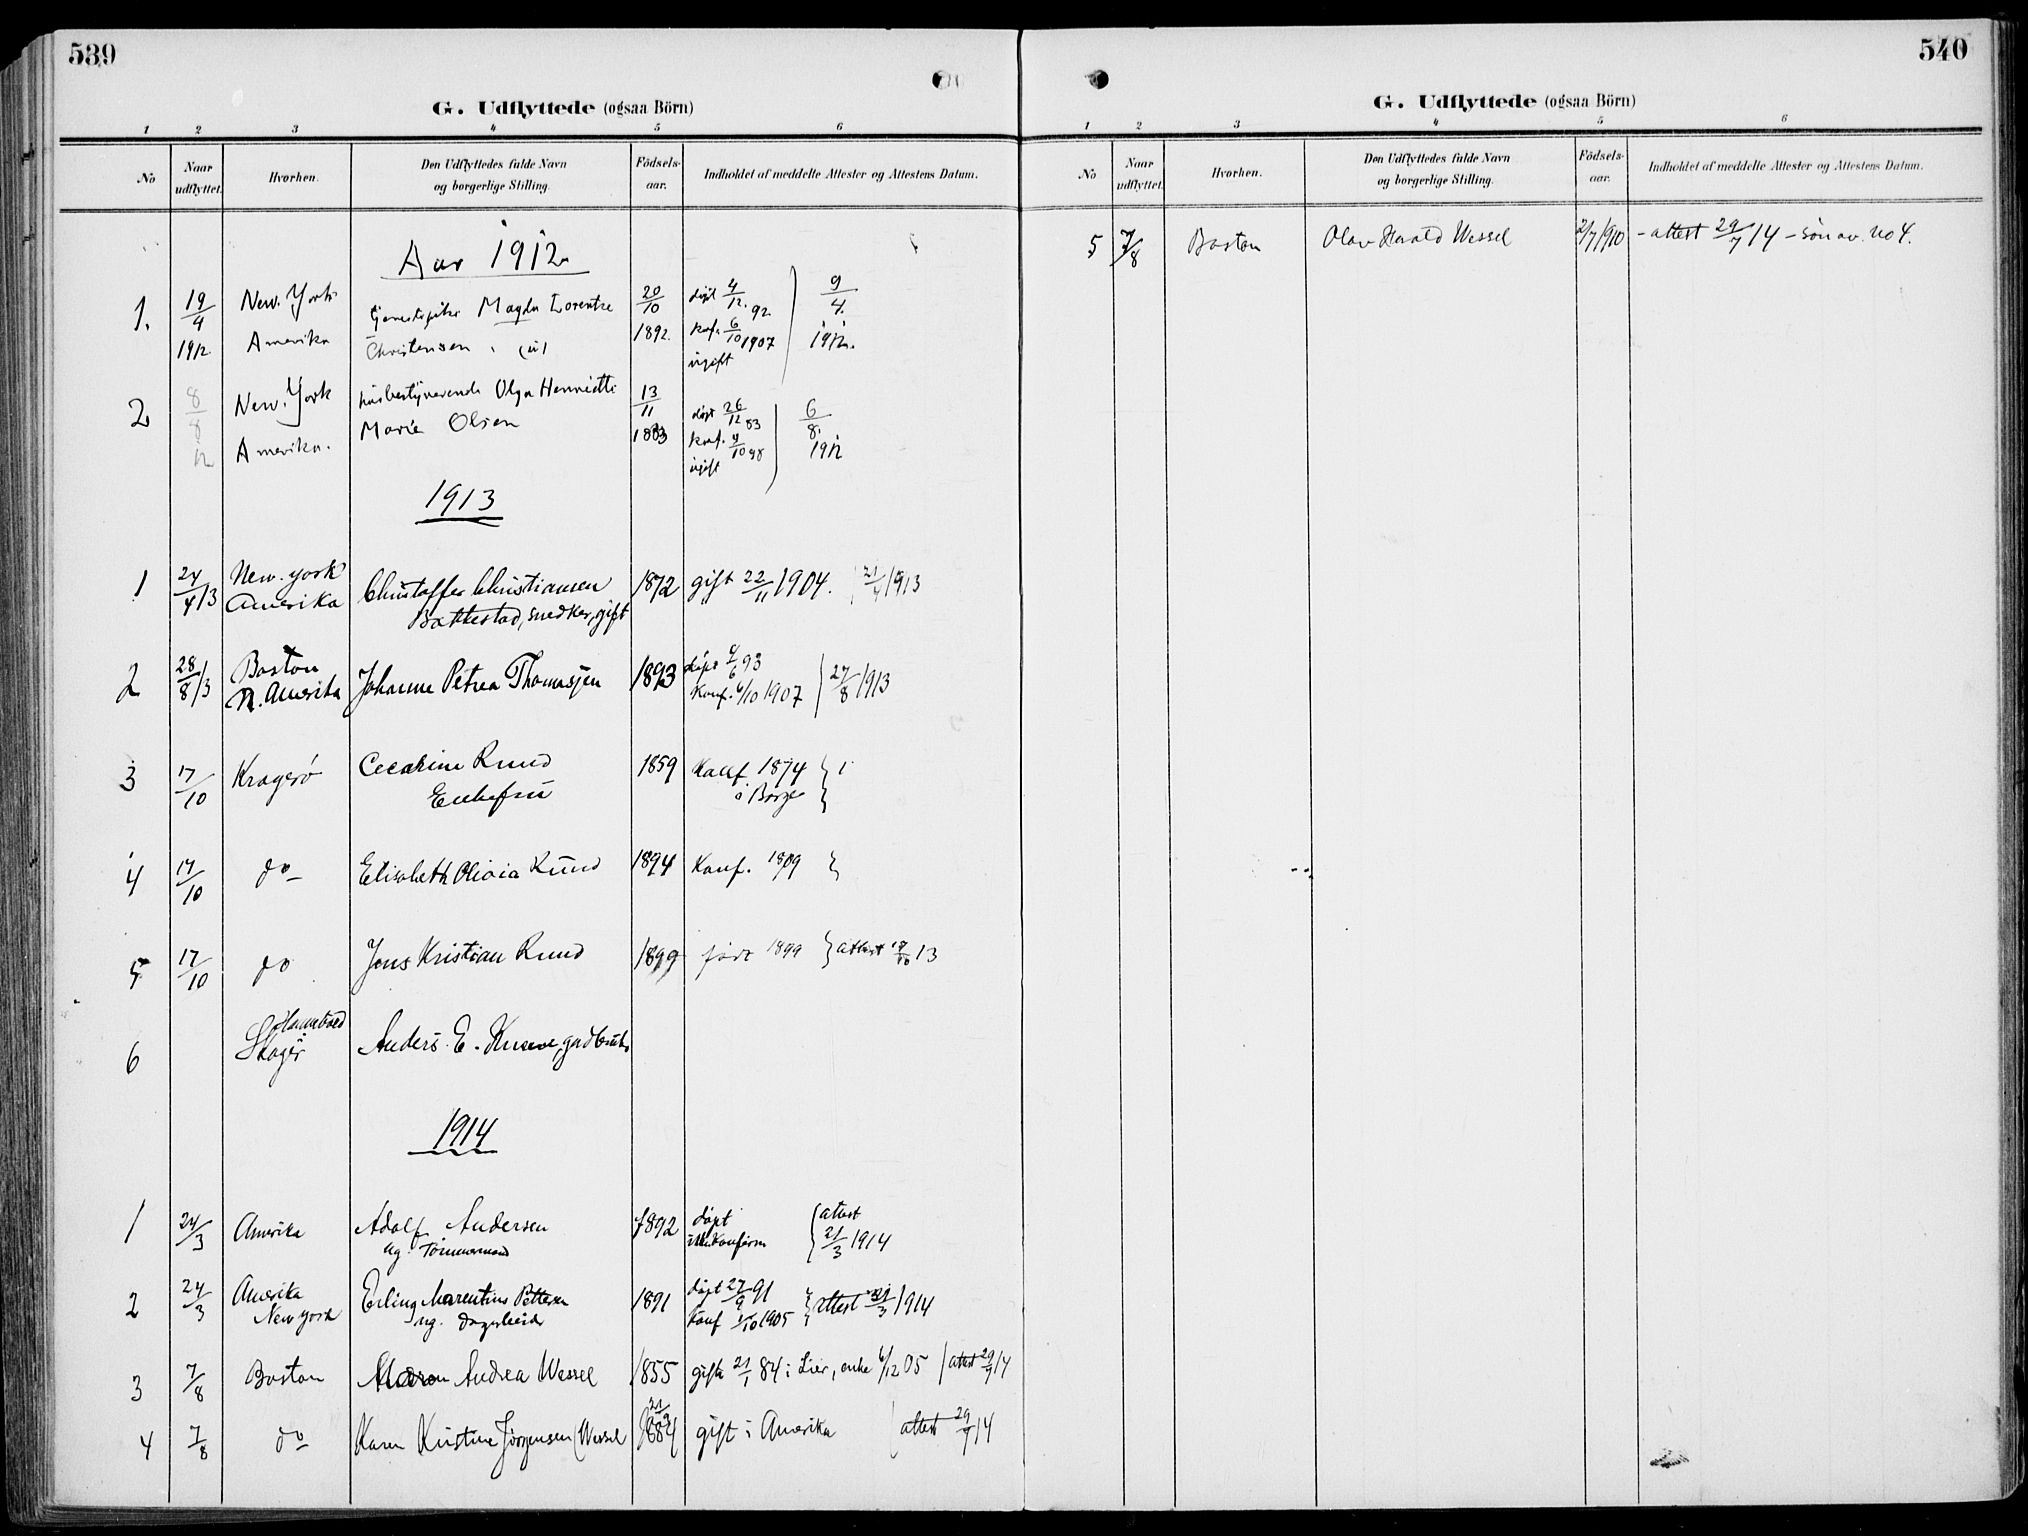 539
G. Udflyttede (ogsaa Börn)
1 2 3 4 5 6
No
Naar udflyttet.
Hvorhen.
Den Udflyttedes fulde Navn og borgerlige Stilling.
Födsels-aar.
Indholdet af meddelte Attester og Attestens Datum.
Aar 1912
1. 19/4 1912 New. York Amerika
Magda Lorentze Christensen
20/10 1892.
døpt 4/12. 92
konf. 6/10 1907
ugift
9/4. 1912.
2 8/8 12 New. York Amerika.
husbestyrerende Olga Henriette
Marie Olsen
13/11 1883
døpt 26/12 83
konf. 98
ugift
6/8. 1912
1913
1 24/4 13 New. york Amerika
Christoffer Christiansen
Bakkestad, snedker, gift
1872 gift 22/11 1904. 1913
2 28/8 13 Boston N. Amerika
Johanne Petrea Thomasjen
1893 døpt 4/6 93
Konf. 6/10 1907 27/8 1913
3 17/10 Kragerø
Cecarine Ruud
Enkefru
1859 Konf. 1874
i Borge
4 17/10 do
Elisabeth Olivia Ruud
1894 Konf. 1909
5 17/10 do
Jens Kristian Ruud
1899 født 1899 attest 17/10 13
6
Anders E.
1914
1 24/3 Amerika
Adolf Andersen
ug. Tømmermand
1892 døpt
ikke konfirm
attest 21/3 1914
2 24/3 Amerika New york
Erling Marentius Pettersen
ug. dagarbeider
1891 døpt 27/9 91
Konf 1/10 1905 attest 21/3 1914
3 7/8 Boston
Maren Andrea Wessel
1855 gift 21/1 84 i Lier, enke 6/12 05 attest 29/7 14
4 7/8 do
Karen Kristine Jörgensen (Wessel
21/9 1884 gift i Amerika attest 29/7 14
540
G. Udflyttede (ogsaa Börn)
1 2 3 4 5 6
No
Naar udflyttet.
Hvorhen.
Den Udflyttedes fulde Navn og borgerlige Stilling.
Födsels-aar.
Indholdet af meddelte Attester og Attestens Datum.
5 7/8 Boston Olav Harald Wessel 2/7 1910 - attest 29/7 14 - søn av no 4.